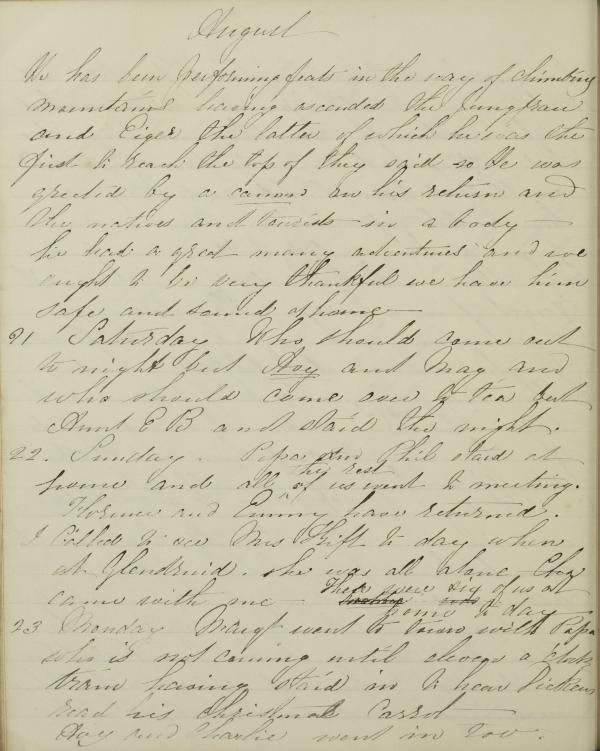 August
He has been performing feats in the way of climbing
mountains having ascended the Jungfrau
and Eiger the latter of which he was the
first to reach the top of they said so He was
greeted by a cannon on his return and
the natives and tourists in a body
he had a great many adventures and we
ought to be very thankful we have him
safe and sound at home
21 Saturday Who should come out
to night but and May and
who should come over to tea but
Aunt E B and staid the night.
22. Sunday. Papa and Phil staid at
home and all the rest of us went to meeting.
Florence and Emmy have returned.
I called to see Mrs to day when
at Glendruid. she was all alone
came with me There were six of us at
home to day
23 Monday went to town with Papa
who is not coming until eleven o clock
train having staid in to hear Dickens
read his Christmas Carrol
and Charlie went in too.